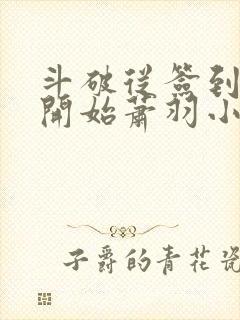 斗破從簽到
開始蕭羽小
子爵的青花瓷